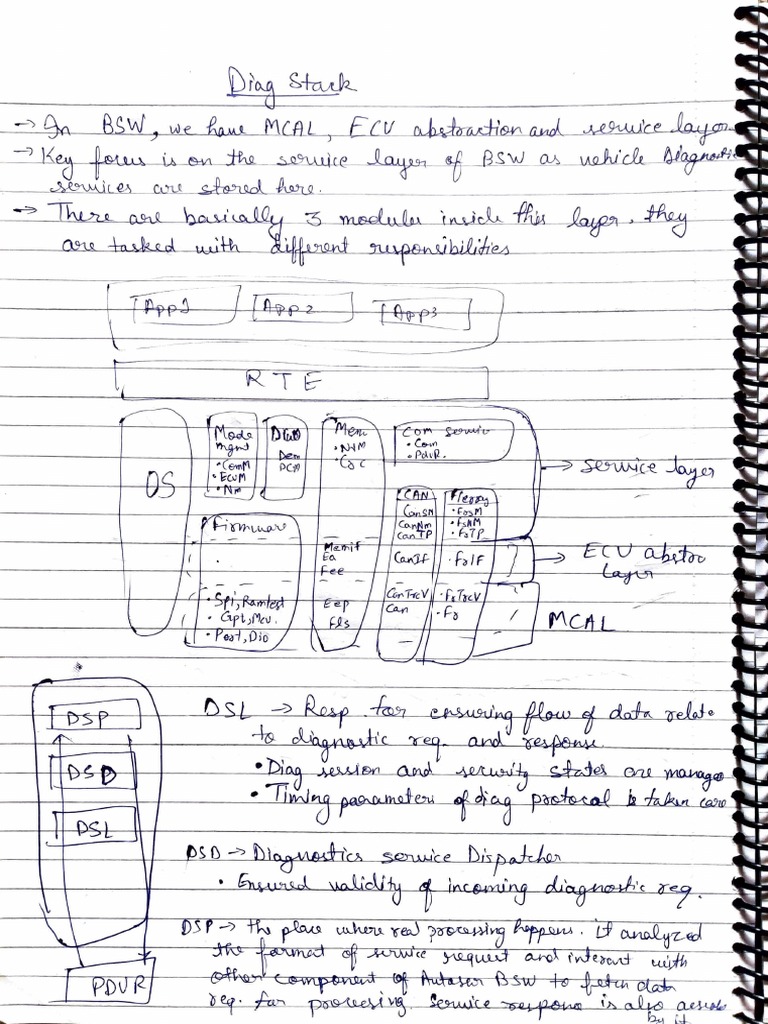 Diag Stack
→ In BSW, we have MCAL, ECU abstraction and service layer
→ Key focus is on the service layer of BSW as vehicle Diagnostic
services are stored here.
→ There are basically 3 modules inside this layer. they
are tasked with different responsibilities
App1 App2 App3
RTE
OS
Mode
mgmt
• ComM
• EcuM
• Nm
Dem
DCM
Mem
• NvM
• Crc
Com Service
• Com
• PduR.
→ service layer
CAN
CanSM
CanNm
CanTP
• FrSM
• FrNM
• FrTP
Firmware
Memif
Ea
Fee
CanIf
• FrIF
→ ECU abstra
layer
• Spi, Ramtest
• Gpt, Mcu.
• Port, Dio
Eep
Fls
CanTrcv
Can
• FrTrcv
• Fr
MCAL
DSP
DSD
DSL
PDUR
DSL → Resp. for ensuring flow of data relate
to diagnostic req. and response.
• Diag session and security states are manage
• Timing parameters of diag protocol is taken care
DSD → Diagnostics service Dispatcher
• Ensured validity of incoming diagnostic req.
DSP → the place where real processing happens. it analyzed
the format of service request and interact with
other component of Autosar BSW to fetch data
req. for processing. Service respons is also
by it